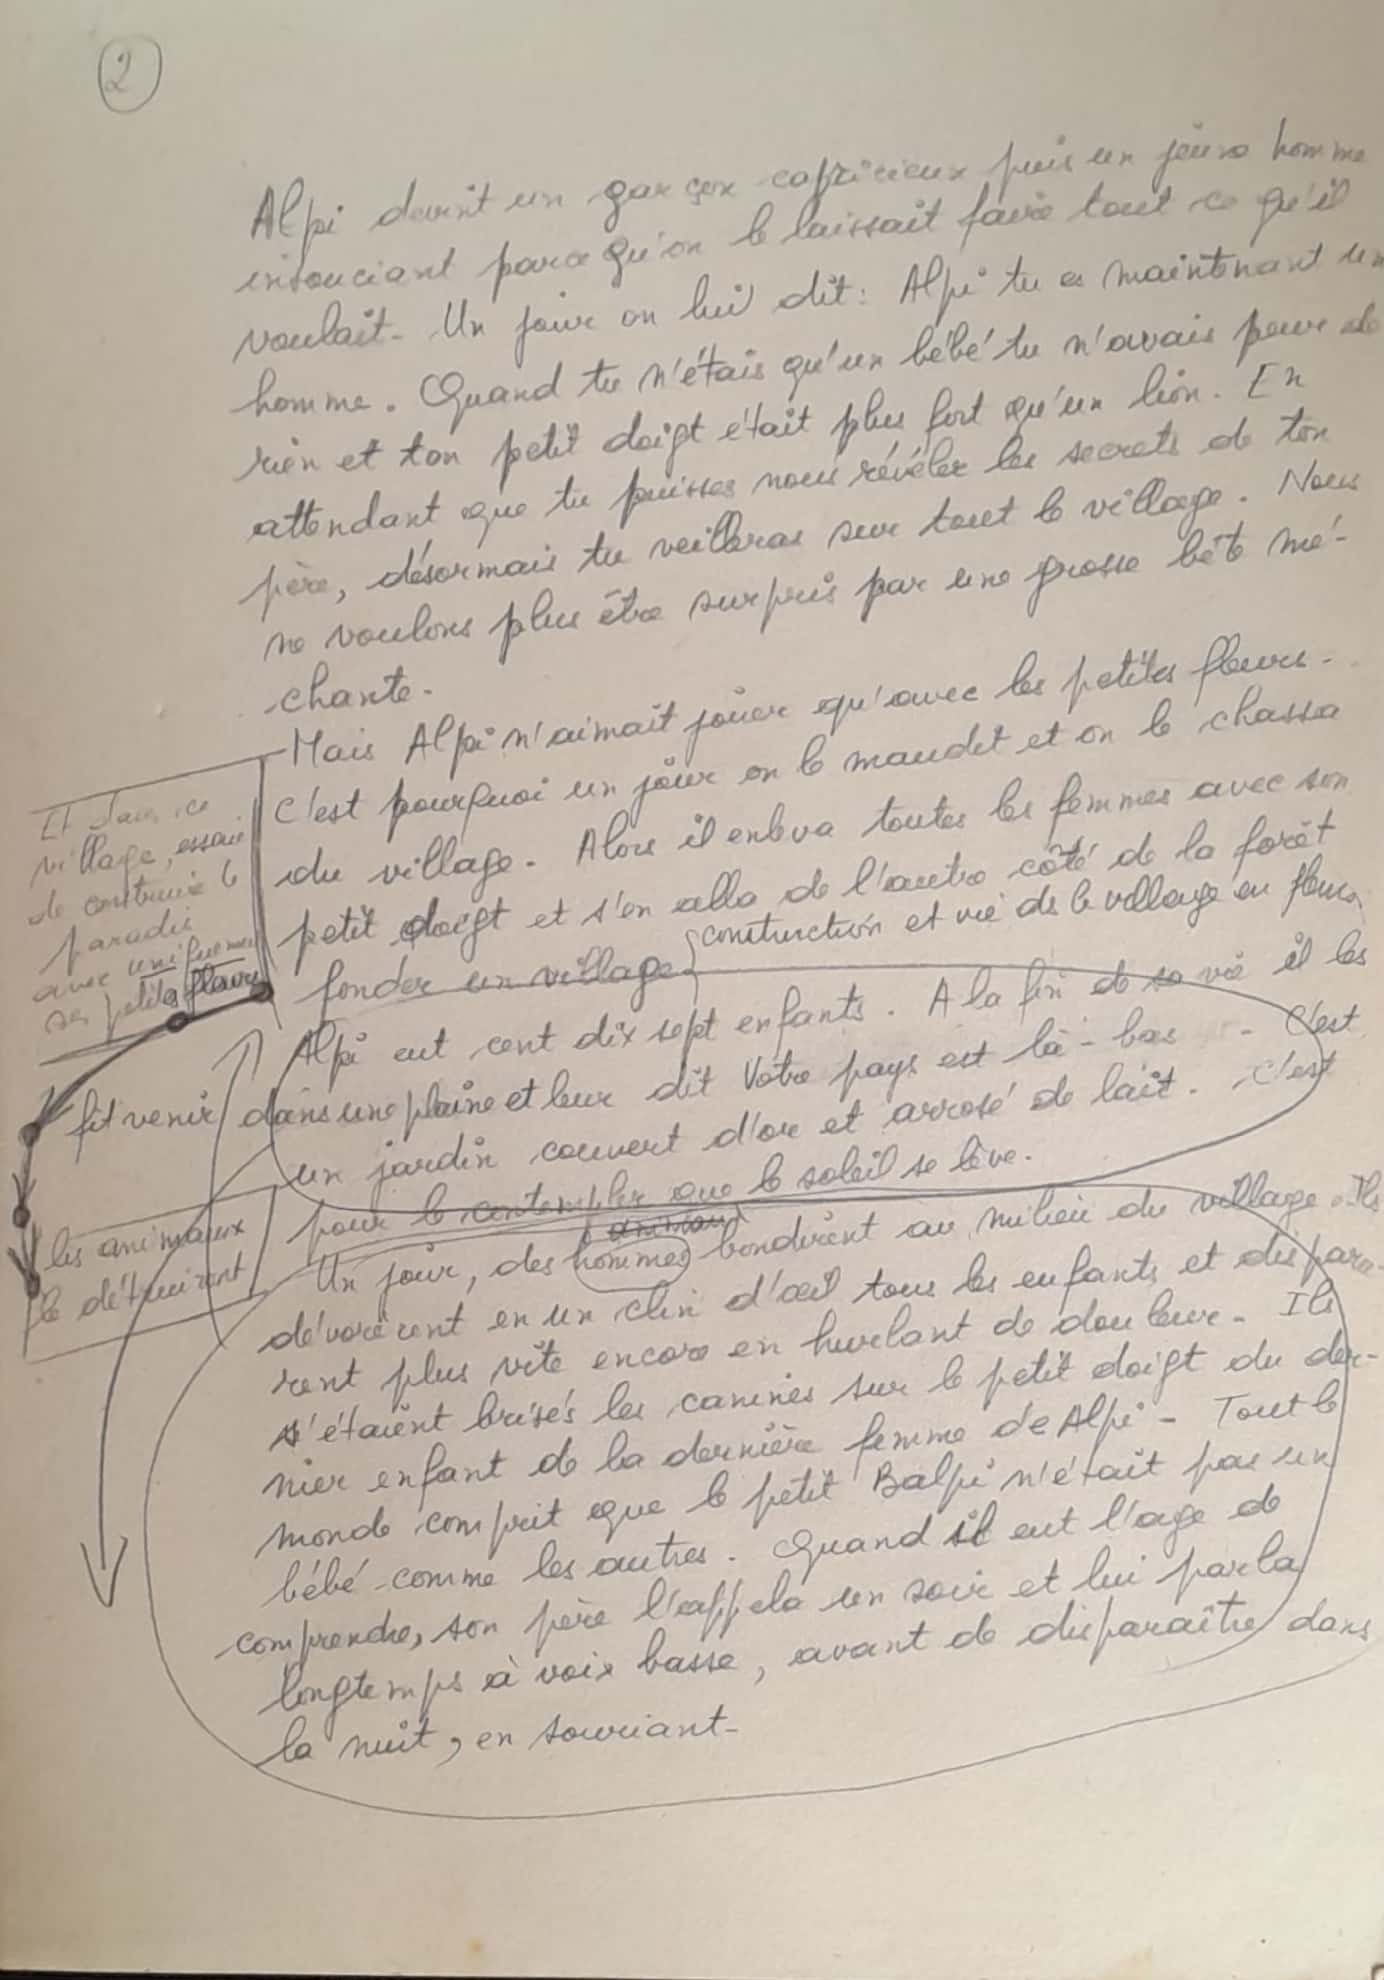 2
Alpi devint un garçon capricieux puis un jeune homme
insouciant parce qu'on le laissait faire tout ce qu'il
voulait. Un jour on lui dit : Alpi tu es maintenant un
homme. Quand tu n'étais qu'un bébé tu n'avais peur de
rien et ton petit doigt était plus fort qu'un lion. En
attendant que tu puisses nous révéler les secrets de ton
père, désormais tu veilleras sur tout le village. Nous
ne voulons plus être surpris par une grosse bête mé-
chante.
Mais Alpi n'aimait jouer qu'avec les petites fleurs.
C'est pourquoi un jour on le maudit et on le chassa
du village. Alors il enleva toutes les femmes avec son
petit doigt et s'en alla de l'autre côté de la forêt
fonder un village
construction et vie de le village en fleurs
Et dans ce
village, essaie
de construire le
paradis
avec uniquement
ses petites fleurs
Alpi eut cent dix sept enfants. A la fin de sa vie il les
fit venir dans une plaine et leur dit Votre pays est là-bas - C'est
un jardin couvert d'or et arrosé de lait. C'est
pour le contempler que le soleil se lève.
les animaux
le détruirent
animaux
Un jour, des hommes bondirent au milieu du village. Ils
dévorèrent en un clin d'œil tous les enfants et dispara-
rent plus vite encore en hurlant de douleur. Ils
s'étaient brisés les canines sur le petit doigt du der-
nier enfant de la dernière femme de Alpi - Tout le
monde comprit que le petit Balpi n'était pas un
bébé comme les autres. Quand il eut l'age de
comprendre, son père l'appela un soir et lui parla
longtemps à voix basse, avant de disparaître dans
la nuit, en souriant-